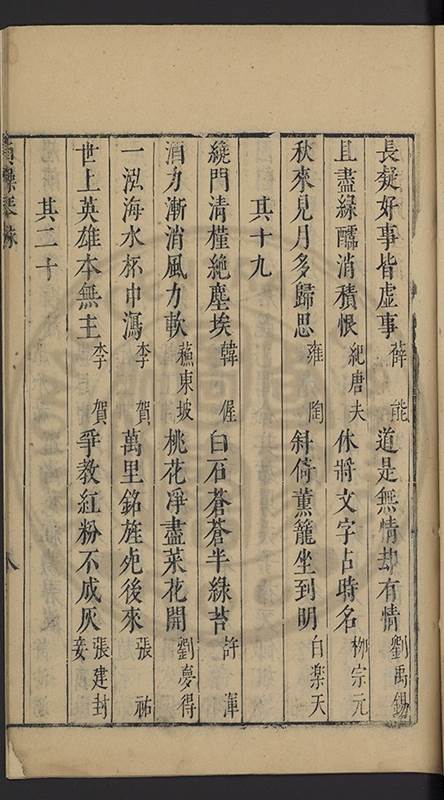 長疑好事皆虛事 薛能 道是無情却有情 劉禹錫
且盡綠醽消積恨 紀唐夫 休將文字占時名 柳宗元
秋來見月多歸思 雍陶 斜倚薰籠坐到明 白楽天
其十九
繞門清槿絶塵埃 韓偓 白石蒼蒼半綠苔 許渾
酒力漸消風力軟 蘓東坡 桃花凈盡菜花開 劉夢得
一泓海水杯中瀉 李賀 萬里銘旌死後來 張祜
世上英雄本無主 李賀 爭教紅粉不成灰 張建封妾
其二十
八